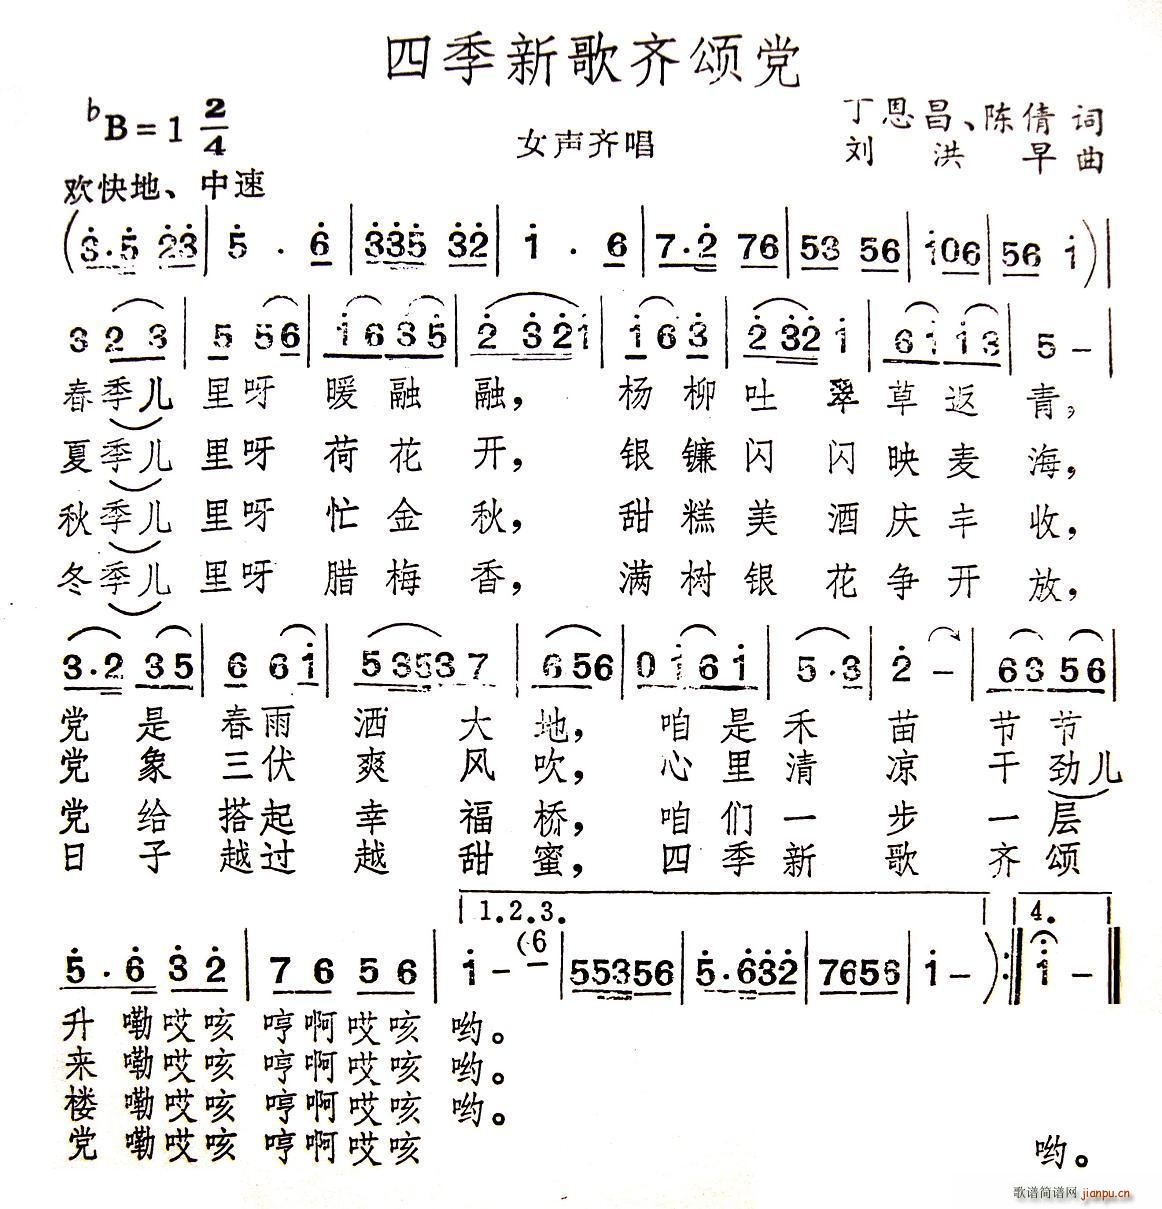 四季新歌齐颂党
♭B=1 2/4
女声齐唱
丁恩昌、陈倩 词
刘洪早 曲
欢快地、中速
(3·5 23 | 5 · 6 | 335 32 | 1 · 6 | 7·2 76 | 53 56 | 106 | 56 1 ) |
3 2 3 | 5 56 | 16 35 | 2 321 | 16 3 | 2 32 1 | 61 13 | 5 – |
春季儿 里呀 暖融融, 杨柳吐翠草返青,
夏季儿 里呀 荷花开, 银镰闪闪映麦海,
秋季儿 里呀 忙金秋, 甜糕美酒庆丰收,
冬季儿 里呀 腊梅香, 满树银花争开放,
3·2 35 | 6 61 | 5353 7 | 656 | 0161 | 5·3 | 2 – | 63 56 |
党是春雨洒大地, 咱是禾苗节节
党象三伏爽风吹, 心里清凉干劲儿
党给搭起幸福桥, 咱们一步一层
日子越过越甜蜜, 四季新歌齐颂
1.2.3. 4.
5·6 32 | 76 56 | 1 – (6 | 55356 | 5·632 | 7656 | 1 – ) :‖ 1 – ‖
升 嘞哎咳 哼啊哎咳 哟。
来 嘞哎咳 哼啊哎咳 哟。
楼 嘞哎咳 哼啊哎咳 哟。
党 嘞哎咳 哼啊哎咳 哟。
歌谱简谱网 jianpu.cn